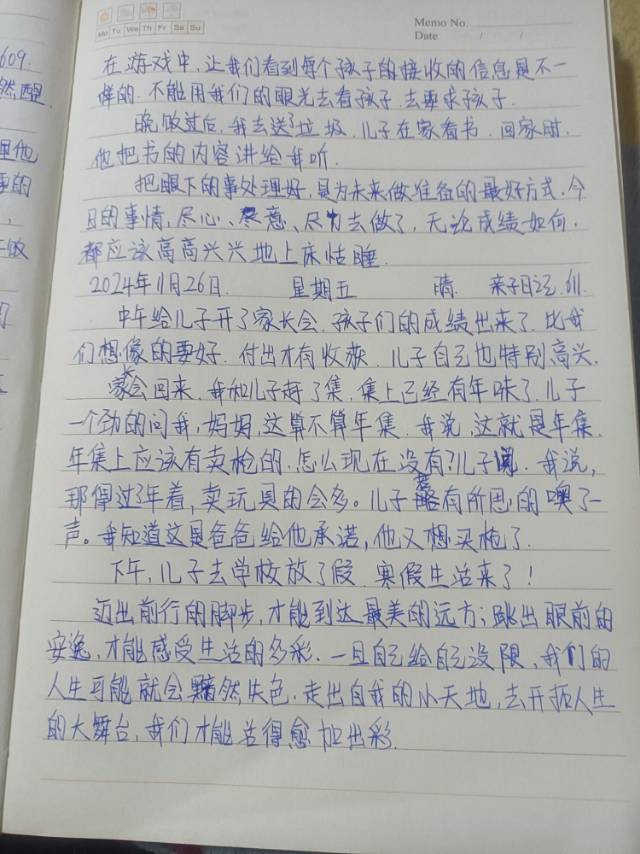 Mo Tu We Th Fr Sa Su
Memo No.
Date / /
609.
然醒
理他
的
,
做
在游戏中,让我们看到每个孩子的接收的信息是不一
样的.不能用我们的眼光去看孩子.去要求孩子.
晚饭过后,我去送了垃圾.儿子在家看书.回家时.
他把书的内容讲给我听.
把眼下的事处理好,是为未来做准备的最好方式.今
日的事情,尽心、尽意、尽力去做了,无论成绩如何,
都应该高高兴兴地上床怙睡.
2024年11月26日. 星期五 晴. 亲子日记.611.
中午给儿子开了家长会.孩子们的成绩出来了.比我
们想像的要好.付出才有收获.儿子自己也特别高兴.
家会回来.我和儿子赶了集.集上已经有年味了.儿子
一个劲的问我,妈妈,这算不算年集.我说,这就是年集.
年集上应该有卖枪的.怎么现在没有?儿子说.我说,
那得过了年着,卖玩具的会多。儿子若有所思的噢了一
声。我知道这是爸爸给他承诺,他又想买枪了.
下午,儿子去学校放了假.寒假生活来了!
迈出前行的脚步,才能到达最美的远方;跳出眼前的
安逸,才能感受生活的多彩.一旦自己给自己设限,我们的
人生可能就会黯然失色.走出自我的小天地,去开拓人生
的大舞台,我们才能活得愈加出彩.